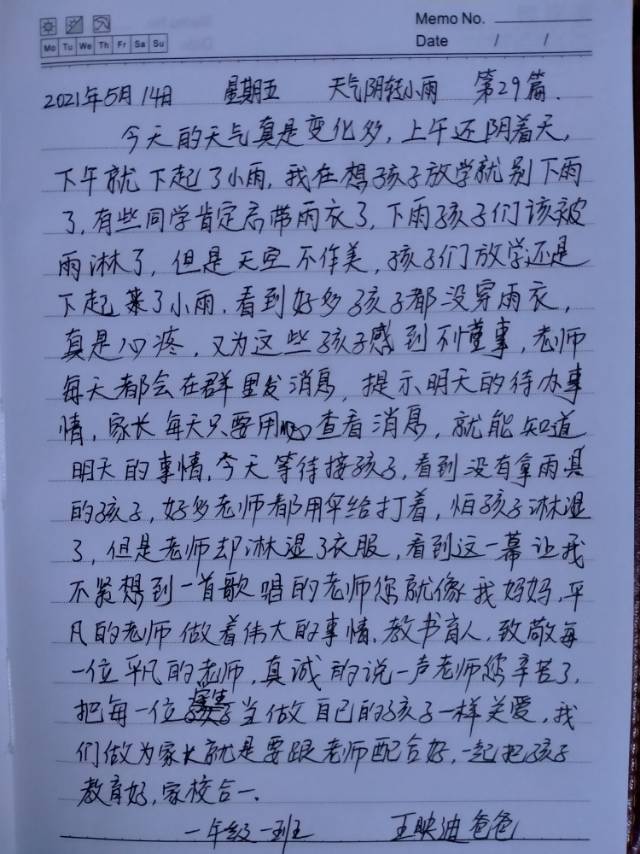 Memo No.
Mo Tu We Th Fr Sa Su
Date / /
2021年5月14日 星期五 天气阴转小雨 第29篇.
今天的天气真是变化多,上午还阴着天,
下午就下起了小雨,我在想孩子放学就别下雨
了,有些同学肯定忘带雨衣了,下雨孩子们该被
雨淋了,但是天空不作美,孩子们放学还是
下起来了小雨.看到好多孩子都没穿雨衣,
真是心疼,又为这些孩子感到不懂事,老师
每天都会在群里发消息,提示明天的待办事
情,家长每天只要用心查看消息,就能知道
明天的事情,今天等待接孩子,看到没有拿雨具
的孩子,好多老师都用伞给打着,怕孩子淋湿
了,但是老师却淋湿了衣服,看到这一幕让我
不紧想到一首歌唱的老师您就像我妈妈,平
凡的老师做着伟大的事情.教书育人,致敬每
一位平凡的老师,真诚的说一声老师您辛苦了,
把每一位学生当做自己的孩子一样关爱,我
们做为家长就是要跟老师配合好,一起把孩子
教育好,家校合一.
一年级一班 王映迪爸爸